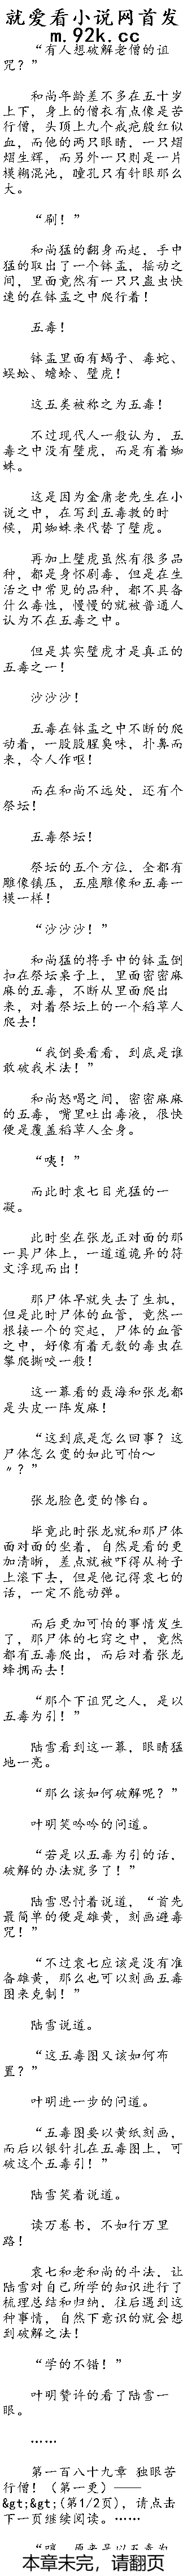 就爱看小说网首发
m.92k.cc
“有人想破解老僧的诅
咒？”
和尚年龄差不多在五十岁
上下，身上的僧衣有点像是苦
行僧，头顶上九个戒疤殷红似
血，而他的两只眼睛，一只熠
熠生辉，而另外一只则是一片
模糊混沌，瞳孔只有针眼那么
大。
“刷！”
和尚猛的翻身而起，手中
猛的取出了一个钵盂，摇动之
间，里面竟然有一只只蛊虫快
速的在钵盂之中爬行着！
五毒！
钵盂里面有蝎子、毒蛇、
蜈蚣、蟾蜍、壁虎！
这五类被称之为五毒！
不过现代人一般认为，五
毒之中没有壁虎，而是有着蜘
蛛。
这是因为金庸老先生在小
说之中，在写到五毒教的时
候，用蜘蛛来代替了壁虎。
再加上壁虎虽然有很多品
种，都是身怀剧毒，但是在生
活之中常见的品种，都不具备
什么毒性，慢慢的就被普通人
认为不在五毒之中。
但是其实壁虎才是真正的
五毒之一！
沙沙沙！
五毒在钵盂之中不断的爬
动着，一股股腥臭味，扑鼻而
来，令人作呕！
而在和尚不远处，还有个
祭坛！
五毒祭坛！
祭坛的五个方位，全都有
雕像镇压，五座雕像和五毒一
模一样！
“沙沙沙！”
和尚猛的将手中的钵盂倒
扣在祭坛桌子上，里面密密麻
麻的五毒，不断从里面爬出
来，对着祭坛上的一个稻草人
爬去！
“我倒要看看，到底是谁
敢破我术法！”
和尚怒喝之间，密密麻麻
的五毒，嘴里吐出毒液，很快
便是覆盖稻草人全身。
“咦！”
而此时袁七目光猛的一
凝。
此时坐在张龙正对面的那
一具尸体上，一道道诡异的符
文浮现而出！
那尸体早就失去了生机，
但是此时尸体的血管，竟然一
根接一个的突起，尸体的血管
之中，好像有着无数的毒虫在
攀爬撕咬一般！
这一幕看的聂海和张龙都
是头皮一阵发麻！
“这到底是怎么回事？这
尸体怎么变的如此可怕～
〃？”
张龙脸色变的惨白。
毕竟此时张龙就和那尸体
面对面的坐着，自然是看的更
加清晰，差点就被吓得从椅子
上滚下去，但是他记得袁七的
话，一定不能动弹。
而后更加可怕的事情发生
了，那尸体的七窍之中，竟然
都有五毒爬出，而后对着张龙
蜂拥而去！
“那个下诅咒之人，是以
五毒为引！”
陆雪看到这一幕，眼睛猛
地一亮。
“那么该如何破解呢？”
叶明笑吟吟的问道。
“若是以五毒为引的话，
破解的办法就多了！”
陆雪思忖着说道，“首先
最简单的便是雄黄，刻画避毒
咒！”
“不过袁七应该是没有准
备雄黄，那么也可以刻画五毒
图来克制！”
陆雪说道。
“这五毒图又该如何布
置？”
叶明进一步的问道。
“五毒图要以黄纸刻画，
而后以银针扎在五毒图上，可
破这个五毒引！”
陆雪笑着说道。
读万卷书，不如行万里
路！
袁七和老和尚的斗法，让
陆雪对自己所学的知识进行了
梳理总结和归纳，往后遇到这
种事情，自然下意识的就会想
到破解之法！
“学的不错！”
叶明赞许的看了陆雪一
眼。
……
第一百八十九章 独眼苦
行僧！（第一更）——
&gt;&gt;(第1/2页)，请点击
下一页继续阅读。……
本章未完，请翻页